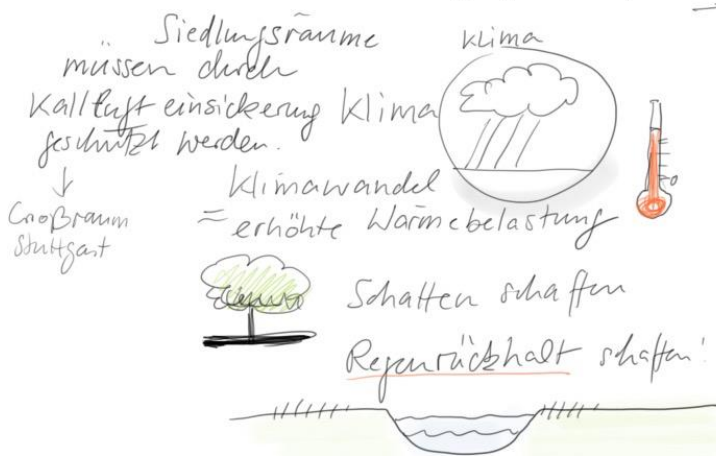 Siedlungsräume
müssen durch
Kaltluft einsickerung
geschützt werden.
Großraum
Stuttgart
Klima
Klima
Klimawandel
= erhöhte Wärmebelastung
Schatten schaffen
Regenrückhalt schaffen!